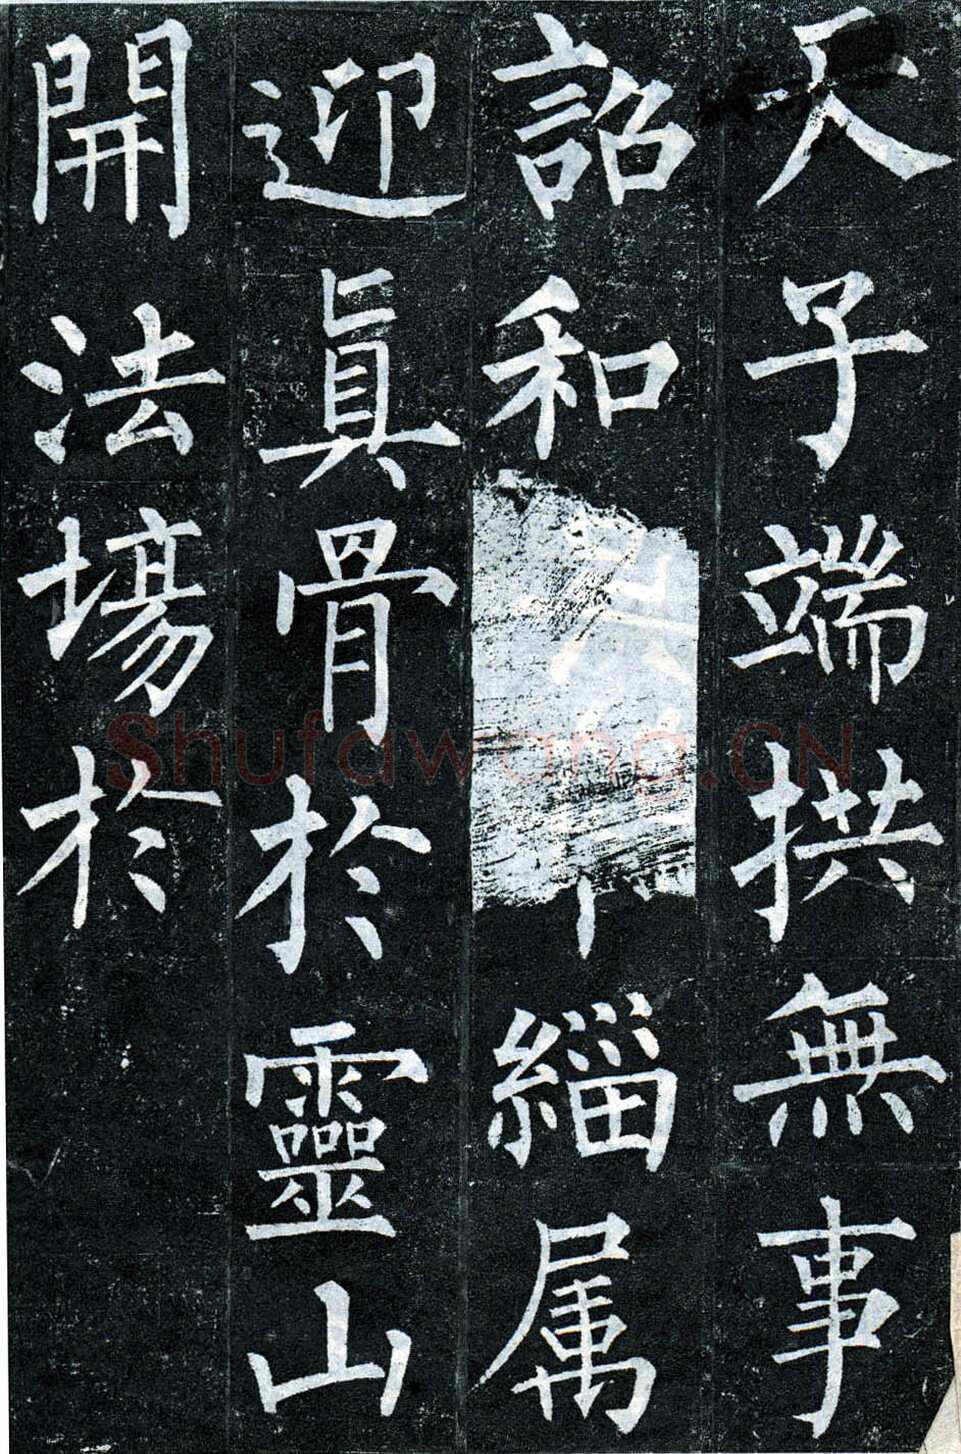 天子端拱無事
詔和緇属
迎眞骨於靈山
開法場於
Shufawang.CN